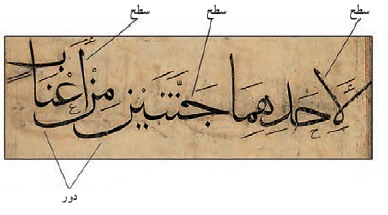 سطح سطح سطح
لِأَحَدِهِمَا جَنَّتَيْنِ مِنْ أَعْنَابٍ
دور